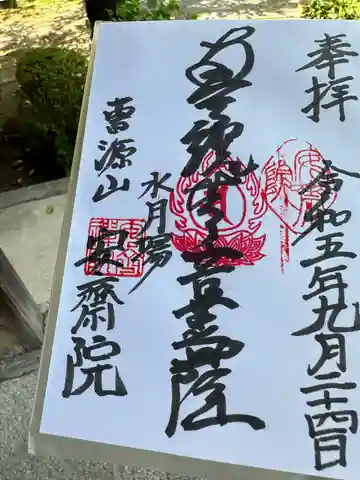 奉拝
令和五年九月二十四日
観世音菩薩
水月場
曹源山
安齋院